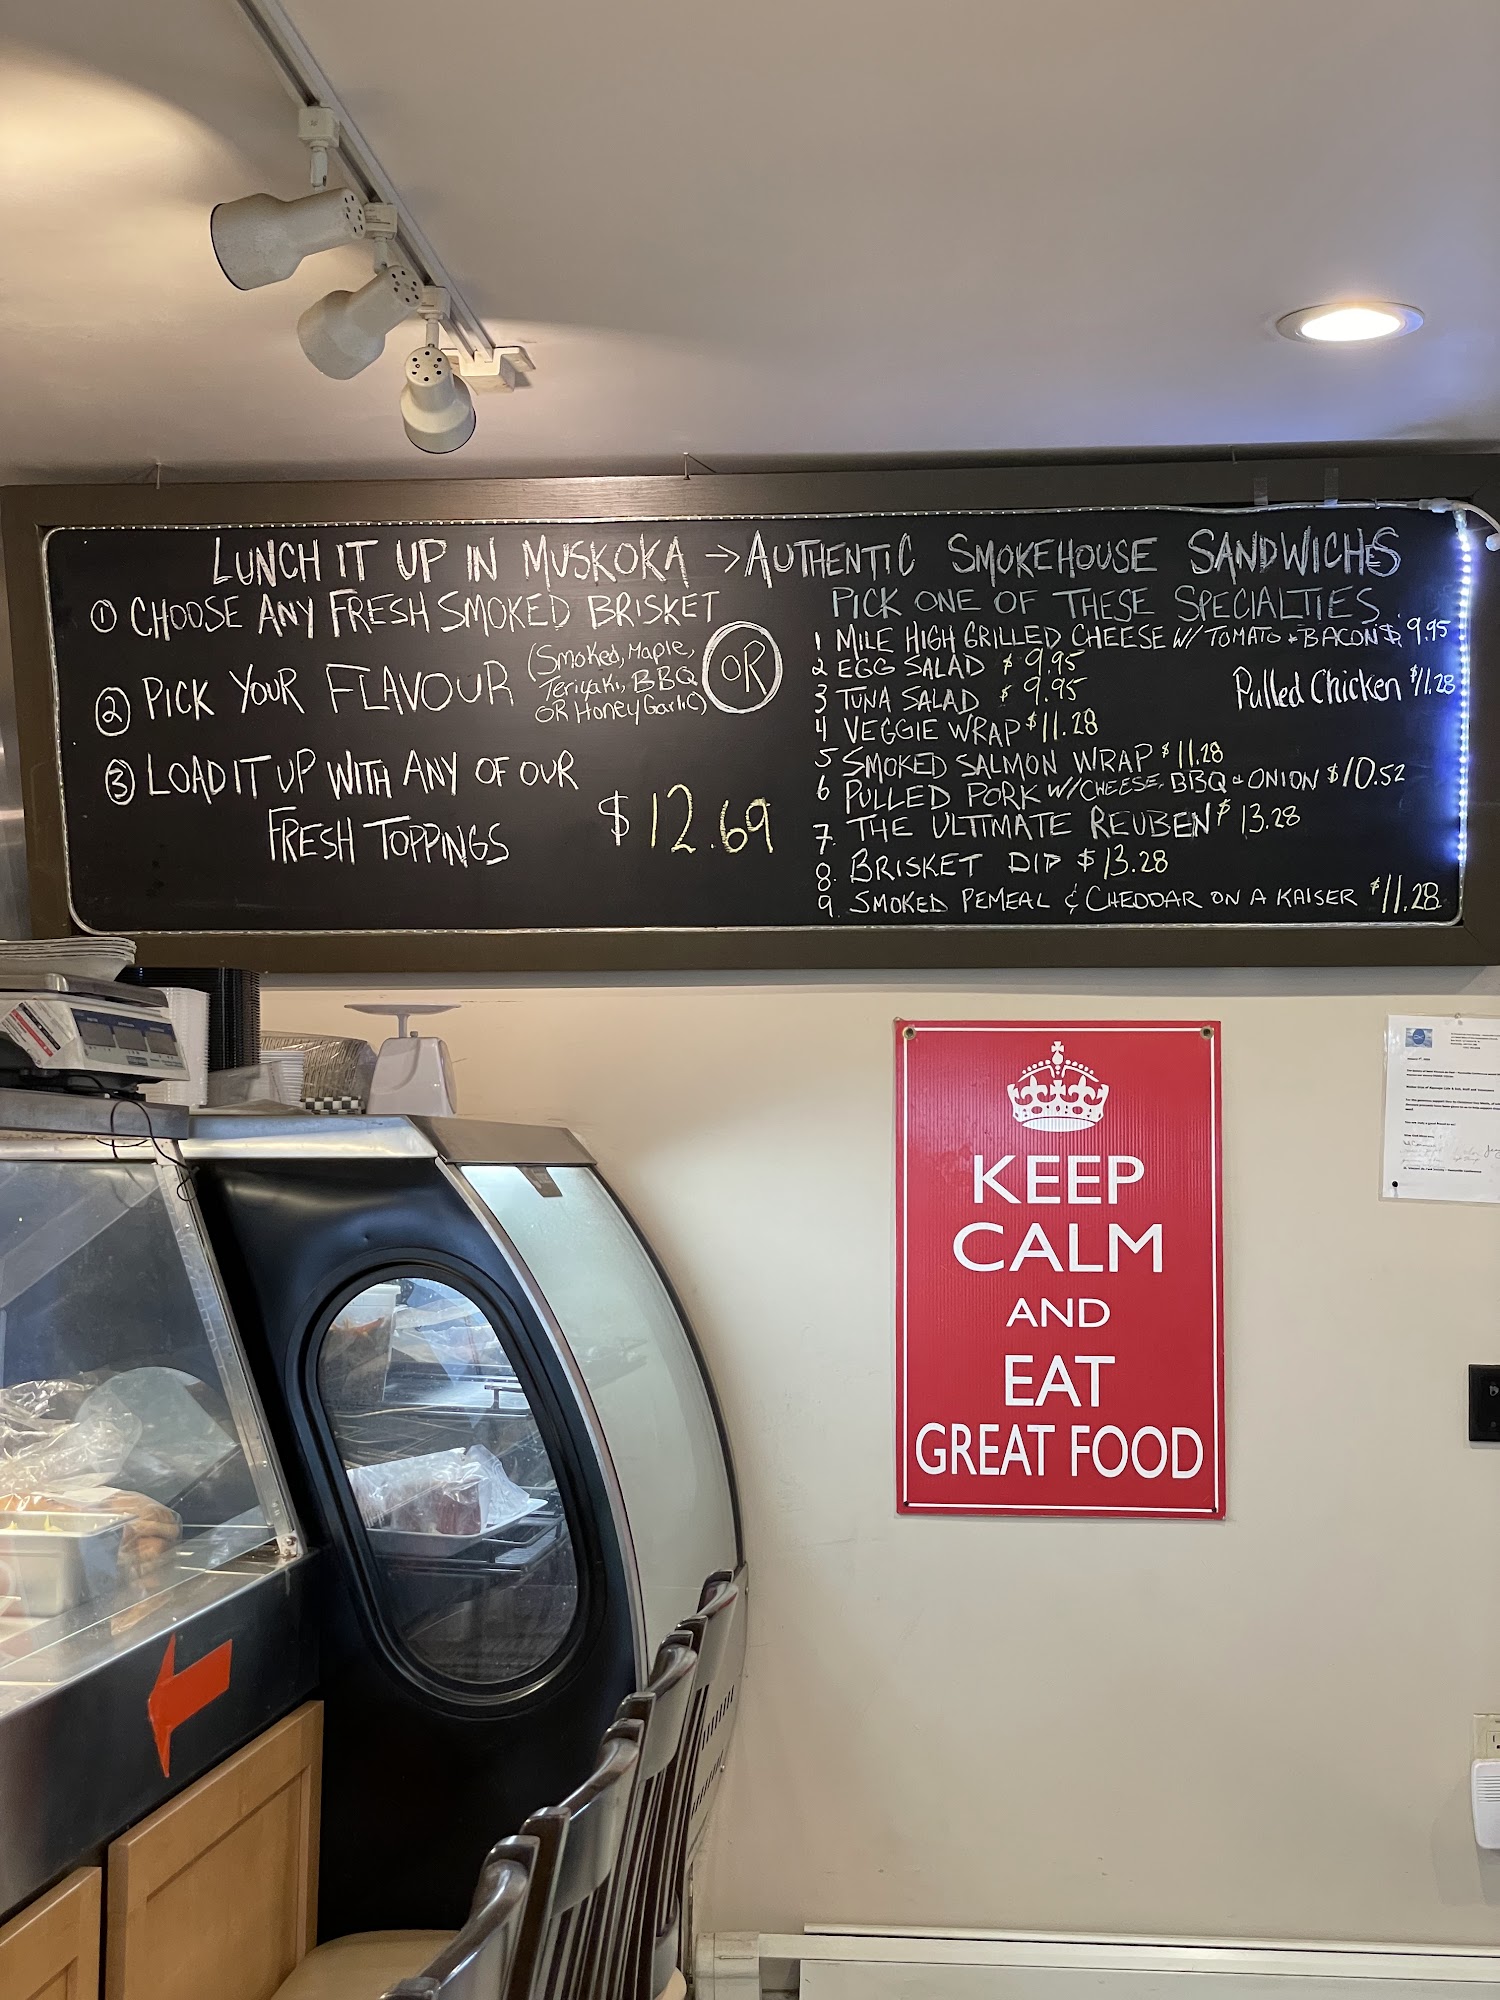 LUNCH IT UP IN MUSKOKA → AUTHENTIC SMOKEHOUSE SANDWICHES
① CHOOSE ANY FRESH SMOKED BRISKET
② PICK YOUR FLAVOUR
(Smoked, Maple,
Teriyaki, BBQ
OR Honey Garlic)
③ LOAD IT UP WITH ANY OF OUR
FRESH TOPPINGS
$12.69
OR
PICK ONE OF THESE SPECIALTIES
1 MILE HIGH GRILLED CHEESE W/ TOMATO + BACON $9.95
2 EGG SALAD $9.95
3 TUNA SALAD $9.95
Pulled Chicken $11.28
4 VEGGIE WRAP $11.28
5 SMOKED SALMON WRAP $11.28
6 PULLED PORK W/CHEESE, BBQ + ONION $10.52
7. THE ULTIMATE REUBEN $13.28
8. BRISKET DIP $13.28
9. SMOKED PEMEAL & CHEDDAR ON A KAISER $11.28
KEEP
CALM
AND
EAT
GREAT FOOD